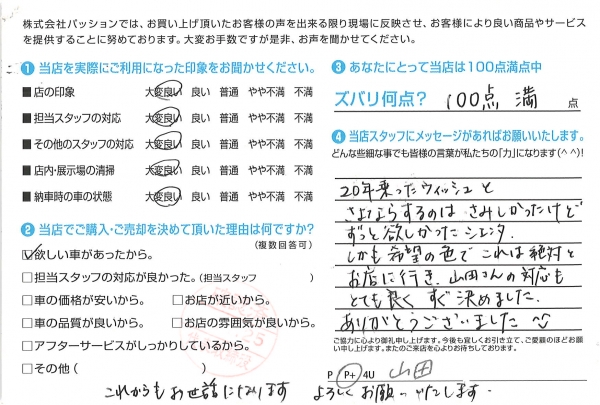 株式会社パッションでは、お買い上げ頂いたお客様の声を出来る限り現場に反映させ、お客様により良い商品やサービス
を提供することに努めております。大変お手数ですが是非、お声を聞かせてください。
1 当店を実際にご利用になった印象をお聞かせください。
■店の印象 大変良い 良い 普通 やや不満 不満
■担当スタッフの対応 大変良い 良い 普通 やや不満 不満
■その他のスタッフの対応 大変良い 良い 普通 やや不満 不満
■店内・展示場の清掃 大変良い 良い 普通 やや不満 不満
■納車時の車の状態 大変良い 良い 普通 やや不満 不満
2 当店でご購入・ご売却を決めて頂いた理由は何ですか?
(複数回答可)
☑欲しい車があったから。
□担当スタッフの対応が良かった。(担当スタッフ )
□車の価格が安いから。 □お店が近いから。
□車の品質が良いから。 □お店の雰囲気が良いから。
□アフターサービスがしっかりしているから。
□その他( )
3 あなたにとって当店は100点満点中
ズバリ何点? 100点満 点
4 当店スタッフにメッセージがあればお願いいたします。
どんな些細な事でも皆様の言葉が私たちの「力」になります(^^)!
20年乗ったウィッシュと
さよならするのは さみしかったけど
ずっと欲しかったシエンタ
しかも希望の色で これは絶対と
お店に行き、山田さんの対応も
とても良く すぐ決めました。
ありがとうございました
ご協力に心より御礼申し上げます。今後も宜しくお引き立て、ご愛顧のほどお願
い申し上げます。またのご来店を心よりお待ちしております。
P P+ 4U 山田
これからもお世話になります よろしくお願いいたします。